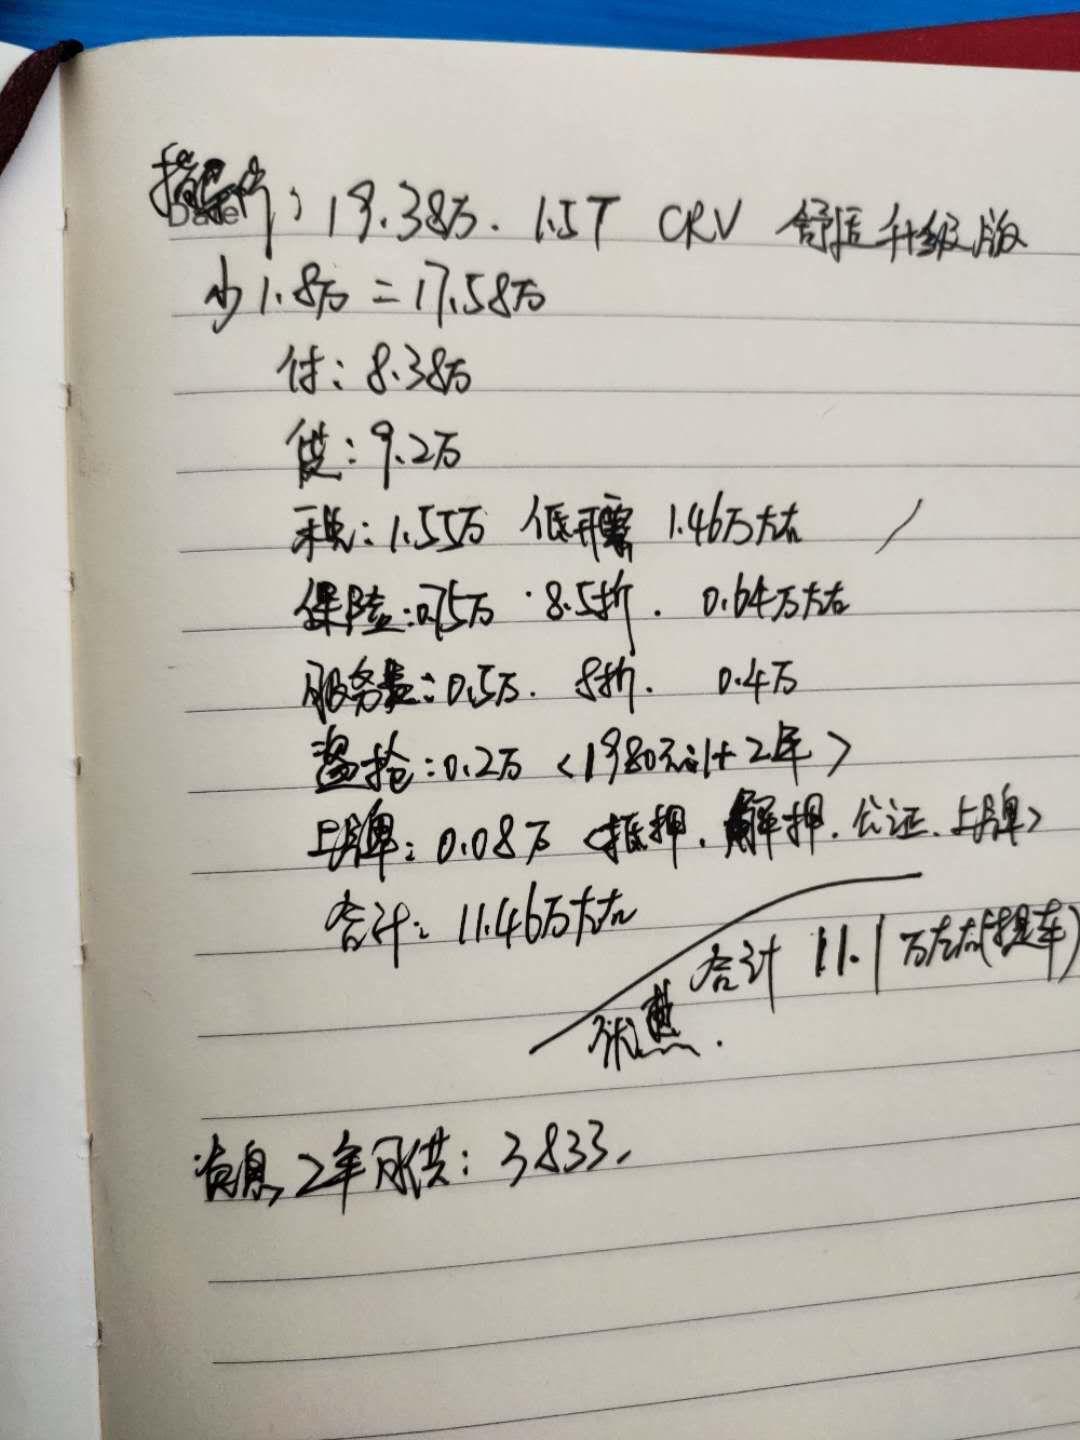 指导价: 19.38万. 1.5T CRV 舒适升级版
Date
少1.8万 = 17.58万
付: 8.38万
贷: 9.2万
税: 1.55万 低开票 1.46万左右
保险: 0.75万 · 8.5折. 0.64万左右
服务费: 0.5万. 8折. 0.4万
盗抢: 0.2万 <1980元 1+2年>
上牌: 0.08万 <抵押. 解押. 公证. 上牌>
合计: 11.46万左右
合计 11.1万左右(提车)
张燕.
息 2年月供: 3833.